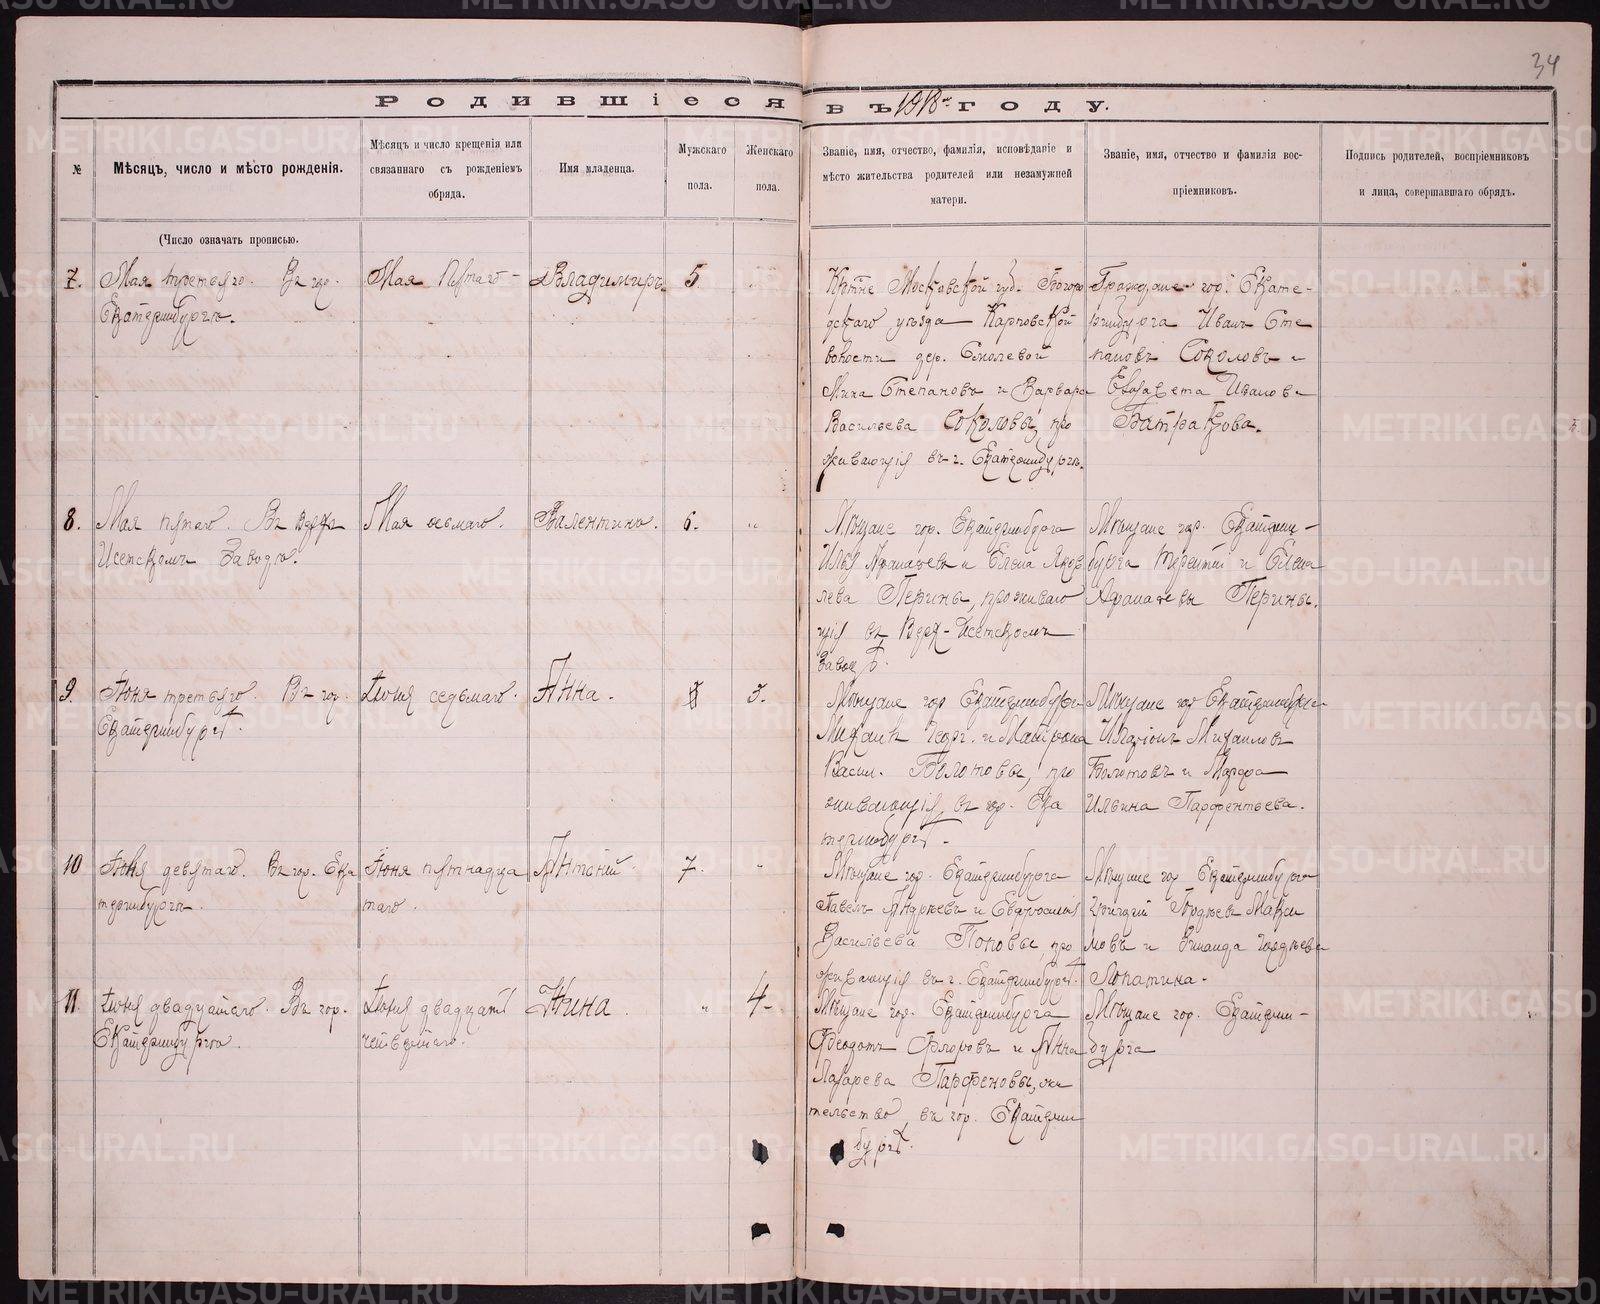 34
Родившіеся въ 1918 году.
№
Мѣсяцъ, число и мѣсто рожденія.
Мѣсяцъ и число крещенія или
связаннаго съ рожденіемъ
обряда.
Имя младенца.
Мужскаго
пола.
Женскаго
пола.
Званіе, имя, отчество, фамилія, исповѣданіе и
мѣсто жительства родителей или незамужней
матери.
Званіе, имя, отчество и фамилія вос-
пріемниковъ.
Подпись родителей, воспріемниковъ
и лица, совершавшаго обрядъ.
(Число означать прописью.
7.
Мая третьяго. Въ гор.
Екатеринбургѣ.
Мая пятаго
Владимиръ
5
Кр-не Московской губ. Богоро
дскаго уѣзда Карповской
волости дер. Смолевой
Степановъ и Варвара
Васильева Соколовы, про
живающія въ г. Екатеринбургѣ.
Граждане гор. Екате-
ринбурга Иванъ Сте
пановъ Соколовъ и
Елизавета Иванова
Батракова.
8.
Мая пятаго. Въ Верхъ
Исетскомъ Заводѣ.
Мая седьмаго.
Валентинъ.
6.
"
Мѣщане гор. Екатеринбурга
Илья Афанасьевъ и Елена Яков
лева Перины, проживаю
щія въ Верхъ-Исетскомъ
Заводѣ.
Мѣщане гор. Екатерин-
бурга Терентій и Елена
Афанасьевы Перины.
9.
Іюня третьяго. Въ гор.
Екатеринбургѣ.
Іюня седьмаго.
Анна.
3.
Мѣщане гор Екатеринбурга
Михаилъ Георг. и Матрона
Васил. Болотовы, про
живающія въ гор. Ека
теринбургѣ.
Мѣщане гор Екатеринбурга
Иларіонъ Михаиловъ
Болотовъ и Марфа
Ильина Парфентьева.
10
Іюня девятаго. Въ гор. Ека
теринбургѣ.
Іюня пятнадца
таго.
Антоній
7.
"
Мѣщане гор. Екатеринбурга
Павелъ Андреевъ и Евфросинія
Васильева Поповы, про
живающія въ г. Екатеринбургѣ.
Мѣщане гор Екатеринбурга
Гордѣевъ Макси
мовъ и Зинаида Гордѣева
Лопатина.
11.
Іюня двадцатаго. Въ гор.
Екатеринбурга.
Іюня двадцать
четвертаго.
Нина
"
4
Мѣщане гор. Екатеринбурга
Феодотъ Флоровъ и Анна
Лазарева Парфеновы, жи
тельство въ гор. Екатерин
бургѣ.
Мѣщане гор. Екатерин-
бурга
METRIKI.GASO-URAL.RU